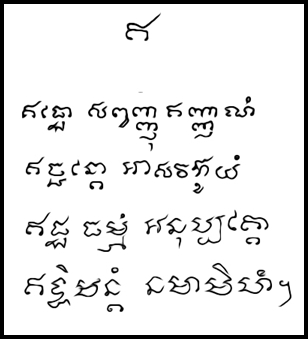 ឥ
ឥដ្ឋោ សព្វញ្ញុតញ្ញាណំ
ឥច្ឆន្តោ អាសវក្ខយំ
ឥដ្ឋ ធម្មំ អនុប្បត្តោ
ឥទ្ធិមន្តំ នមាមិហំ។